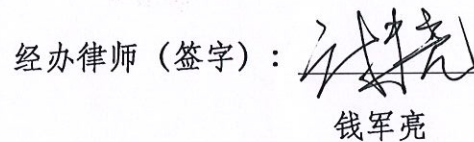 经办律师（签字）：钱军亮
钱军亮